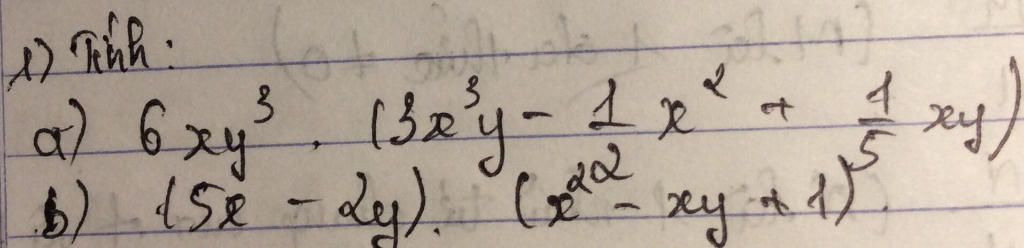 1) Tính:
a) 6xy³ . (3x³y - 1/2 x² + 1/5 xy)
b) (5x - 2y). (x² - xy + 1).